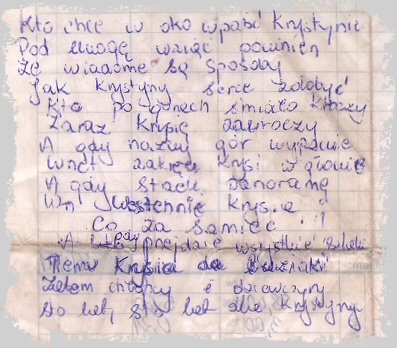 Kto chce w oko wpaść Krystynie
Pod uwagę wziąć powinien
Że wiadome są sposoby
Jak Krystyny serce zdobyć
Kto po górach śmiało kroczy
Zaraz Krysię zauroczy
A gdy nazwy gór wypowie
Wnet zakręci Krysi w głowie
A gdy strzeli panoramę
Krysia
Co za samiec!!
A gdy przejdzie wszystkie szlaki
Temu Krysia da
Zatem chłopcy i dziewczyny
Sto lat, sto lat dla Krystyny